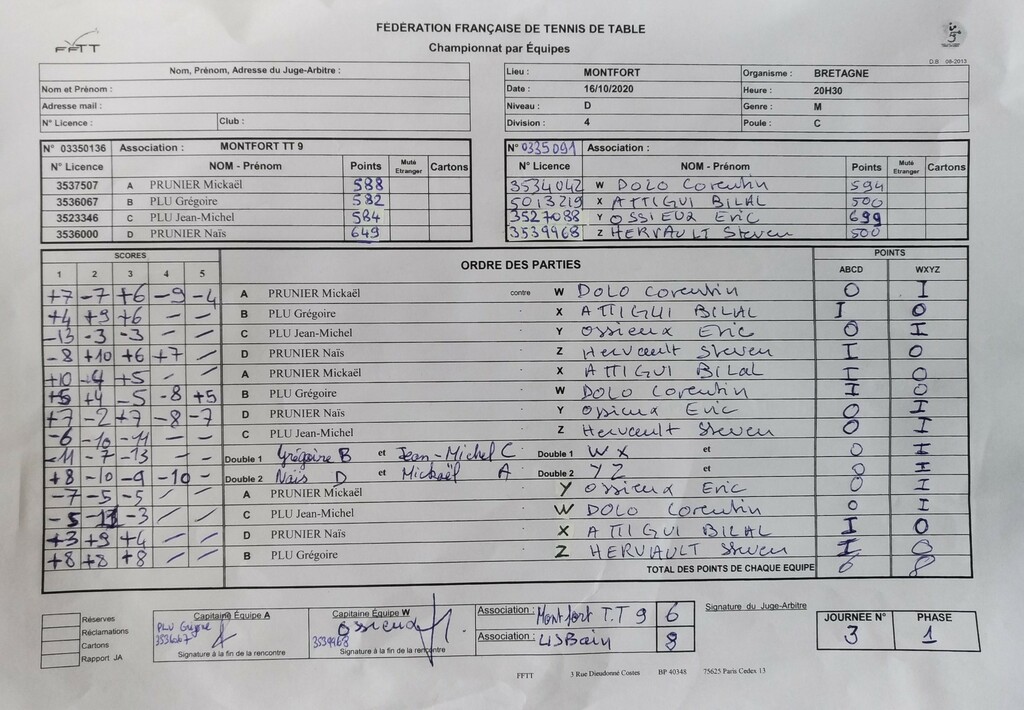 FÉDÉRATION FRANÇAISE DE TENNIS DE TABLE
Championnat par Équipes
FFTT
D.B 08-2013
Nom, Prénom, Adresse du Juge-Arbitre :
Nom et Prénom :
Adresse mail :
N° Licence : Club :
Lieu : MONTFORT Organisme : BRETAGNE
Date : 16/10/2020 Heure : 20H30
Niveau : D Genre : M
Division : 4 Poule : C
N° 03350136 Association : MONTFORT TT 9
N° Licence NOM - Prénom Points Muté Etranger Cartons
3537507 A PRUNIER Mickaël 588
3536067 B PLU Grégoire 582
3523346 C PLU Jean-Michel 584
3536000 D PRUNIER Naïs 649
N° 0335091 Association :
N° Licence NOM - Prénom Points Muté Etranger Cartons
3534042 W DOLO Corentin 594
5013219 X ATTIGUI BILAL 500
3527088 Y OSSIEUX Eric 699
3539968 Z HERVAULT Steven 500
SCORES ORDRE DES PARTIES POINTS
1 2 3 4 5 ABCD WXYZ
+7 -7 +6 -9 -4 A PRUNIER Mickaël contre W DOLO Corentin 0 I
+4 +9 +6 - - B PLU Grégoire X ATTIGUI BILAL I 0
-13 -3 -3 - - C PLU Jean-Michel Y Ossieux Eric 0 I
-8 +10 +6 +7 / D PRUNIER Naïs Z Hervault Steven I 0
+10 -4 +5 / / A PRUNIER Mickaël X ATTIGUI BILAL I 0
+5 +4 -5 -8 +5 B PLU Grégoire W DOLO Corentin I 0
+7 -2 +7 -8 -7 D PRUNIER Naïs Y Ossieux Eric 0 I
-6 -10 -11 - - C PLU Jean-Michel Z Hervault Steven 0 I
-11 -7 -13 - - Double 1 Grégoire B et Jean-Michel C Double 1 W X et 0 I
+8 -10 -9 -10 - Double 2 Naïs D et Mickaël A Double 2 Y Z et 0 I
-7 -5 -5 / / A PRUNIER Mickaël Y Ossieux Eric 0 I
-5 -11 -3 / / C PLU Jean-Michel W DOLO Corentin 0 I
+3 +9 +4 / / D PRUNIER Naïs X ATTIGUI BILAL I 0
+8 +8 +8 / / B PLU Grégoire Z HERVAULT Steven I 0
TOTAL DES POINTS DE CHAQUE EQUIPE 6 8
Réserves
Réclamations
Cartons
Rapport JA
Capitaine Équipe A
PLU
3536067
Signature à la fin de la rencontre
Capitaine Équipe W
3539968
Signature à la fin de la rencontre
Association : Montfort T.T 9 6
Association : USBain 8
Signature du Juge-Arbitre
JOURNEE N° PHASE
3 1
FFTT 3 Rue Dieudonné Costes BP 40348 75625 Paris Cedex 13